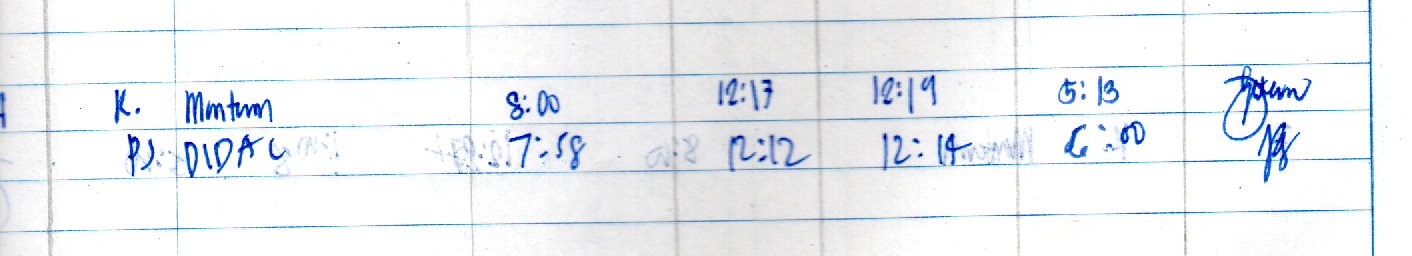 K. 8:00 12:17 12:19 5:13
PJ. DIDAL 7:58 12:12 12:14 6:00